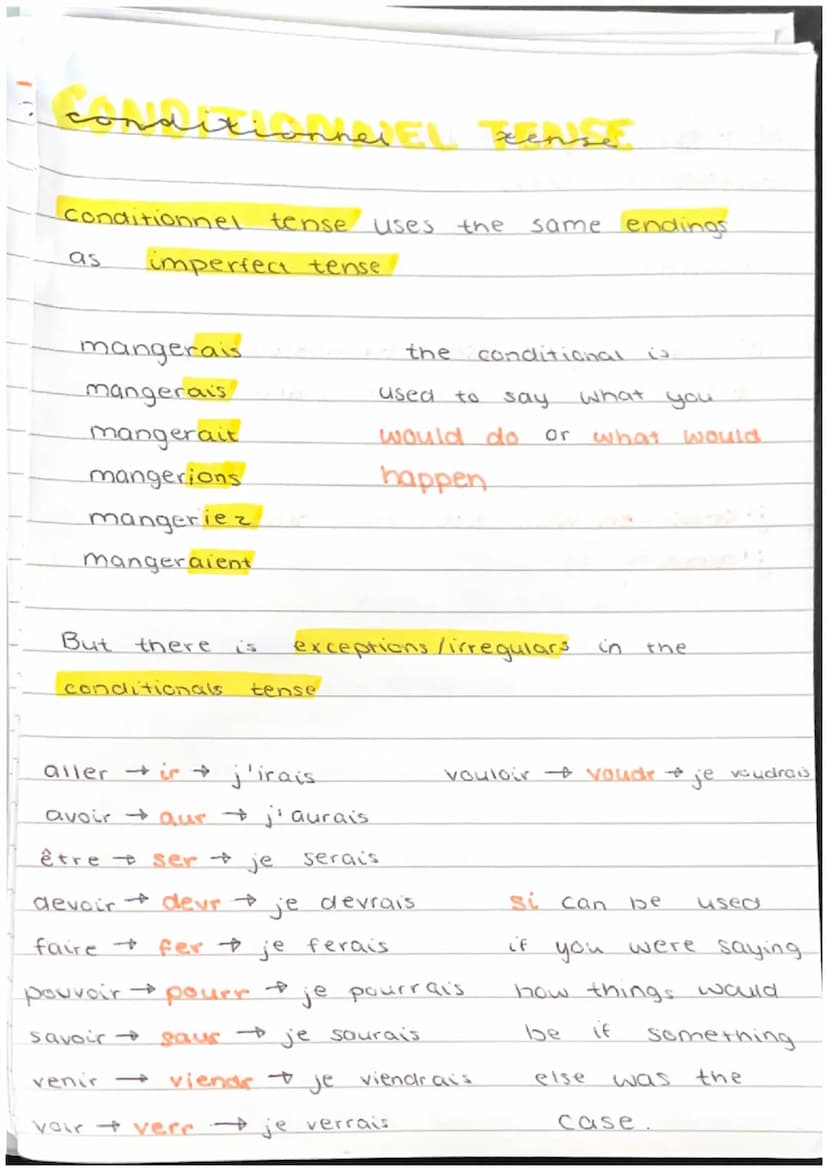 CONDITIONNEL TENSE
conditionnel tense
conditionnel tense uses the same endings
as imperfect tense
mangerais
mangerais
mangerait
mangerions
mangeriez
mangeraient
the conditional is
used to say what you
would do or what would
happen
But there is exceptions/irregulars in the
conditionals tense
aller → ir → j'irais
avoir → aur → j'aurais
être → ser → je serais
devoir → devr → je devrais
faire → fer → je ferais
pouvoir → pourr → je pourrais
savoir → saur → je saurais
venir → viendr → je viendrais
voir → verr → je verrais
vouloir → voudr → je voudrais
si can be used
if you were saying
how things would
be if something
else was the
case.